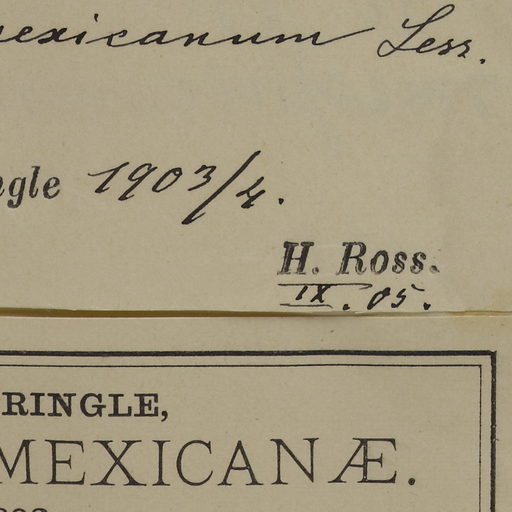 mexicanum Less.
ngle 1903/4.
H. Ross.
IX. 05.
RINGLE,
MEXICANÆ.